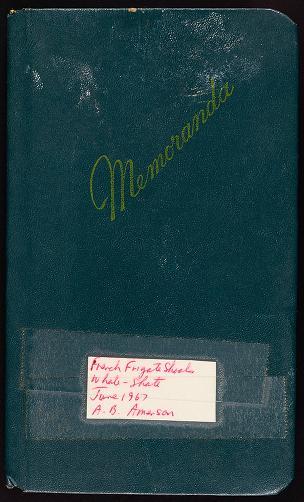 Memoranda
French Frigate Shoals
Whale-Skate
June 1967
A. B. Amerson